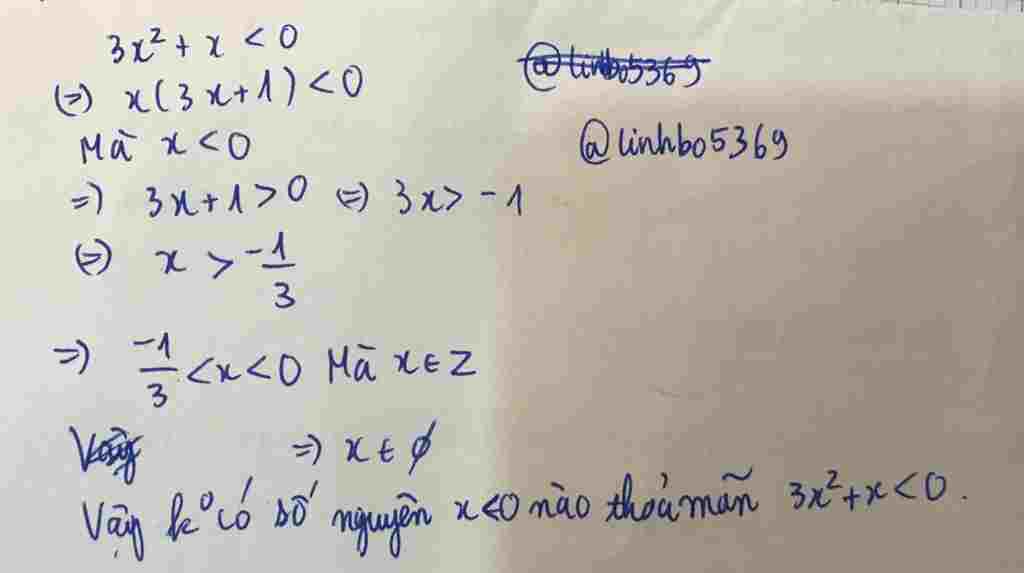 3x² + x < 0
@linhbo5369
(=) x(3x+1) < 0
Mà x < 0
@linhbo5369
=) 3x+1 > 0 (=) 3x > -1
(=) x > -1/3
=) -1/3 < x < 0 Mà x ∈ Z
Vậy =) x ∈ ∅
Vậy k⁰ có số nguyên x<0 nào thoả mãn 3x²+x < 0.